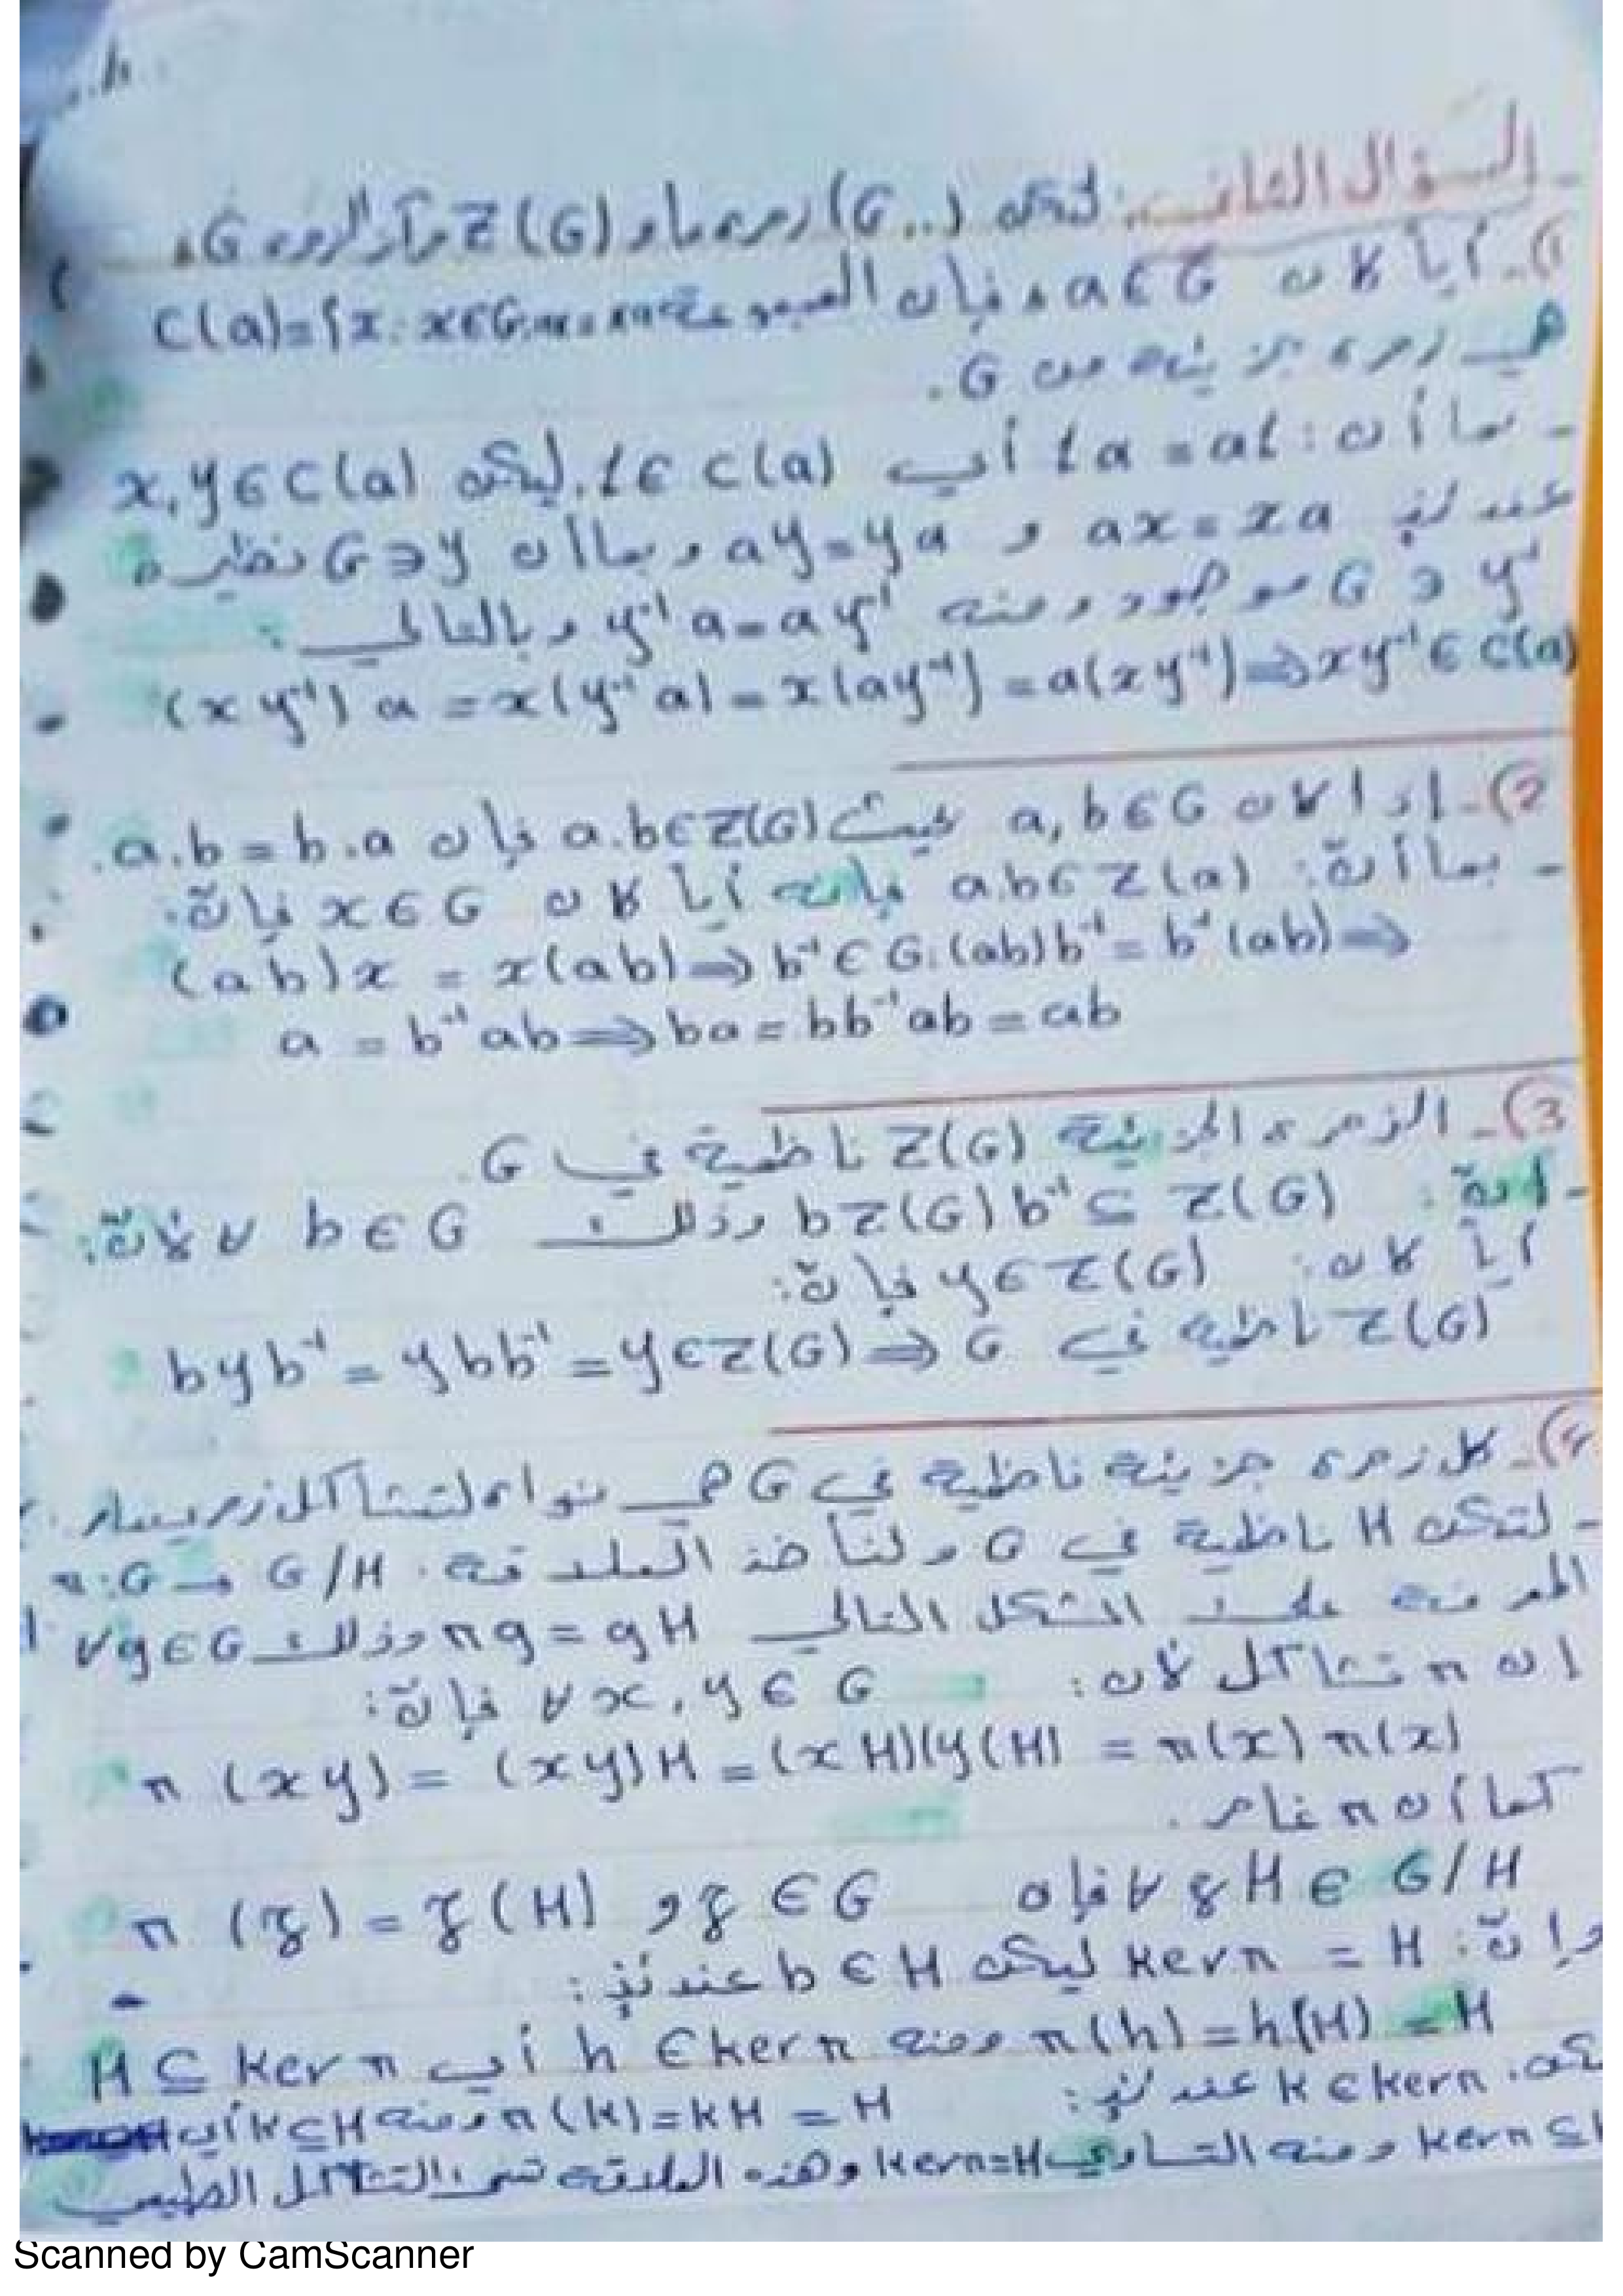 - السؤال الثاني: لتكن (G, .) زمرة ما و Z(G) مركز الزمرة G.
1)- أياً كان a∈G فإن المجموعة C(a)={x: x∈G, ax=xa
هي زمرة جزئية من G.
- بما أن: 1a = a1 أي 1∈ C(a). ليكن x, y∈C(a)
عندئذٍ ax = xa و ay = ya وبما أن G∋y نظيره
y⁻¹∈G موجود ومنه y⁻¹a = ay⁻¹ وبالتالي:
(x y⁻¹) a = x(y⁻¹a) = x(ay⁻¹) = a(xy⁻¹) ⇒ xy⁻¹∈C(a)
2)- إذا كان a, b∈G بحيث a.b∈Z(G) فإن a.b = b.a.
- بما أنّ: ab∈Z(a) فإنه أياً كان x∈G فإنّ:
(ab)x = x(ab) ⇒ b⁻¹∈G: (ab)b⁻¹ = b⁻¹(ab) ⇒
a = b⁻¹ab ⇒ ba = bb⁻¹ab = ab
3)- الزمرة الجزئية Z(G) ناظمية في G
- إنّ: bZ(G)b⁻¹ ⊆ Z(G) وذلك ∀ b∈G لأنّ:
أياً كان: y∈Z(G) فإنّ:
byb⁻¹ = ybb⁻¹ = y∈Z(G) ⇒ G ناظمية في Z(G)
4)- كل زمرة جزئية ناظمية في G هي نواة لتشاكل زمر
- لتكن H ناظمية في G ولنأخذ العلاقة: π: G → G/H
المعرفة على الشكل التالي πg = gH وذلك ∀g∈G
إن π تشاكل لأن: ∀ x, y∈G فإنّ:
π (xy) = (xy)H = (xH)(y(H) = π(x) π(x)
كما أن π غامر.
∀ gH ∈ G/H فإن g∈G و π (g) = g(H)
وإنّ: Kerπ = H ليكن b∈H عندئذٍ:
π(h) = h(H) = H ومنه h∈kerπ أي H ⊆ Kerπ
K∈kerπ عندئذٍ: π(K) = KH = H ومنه K⊆H أي
Kerπ ⊆ ومنه التساوي Kerπ=H وهذه العلاقة تسمى التشاكل الطبيعي
Scanned by CamScanner